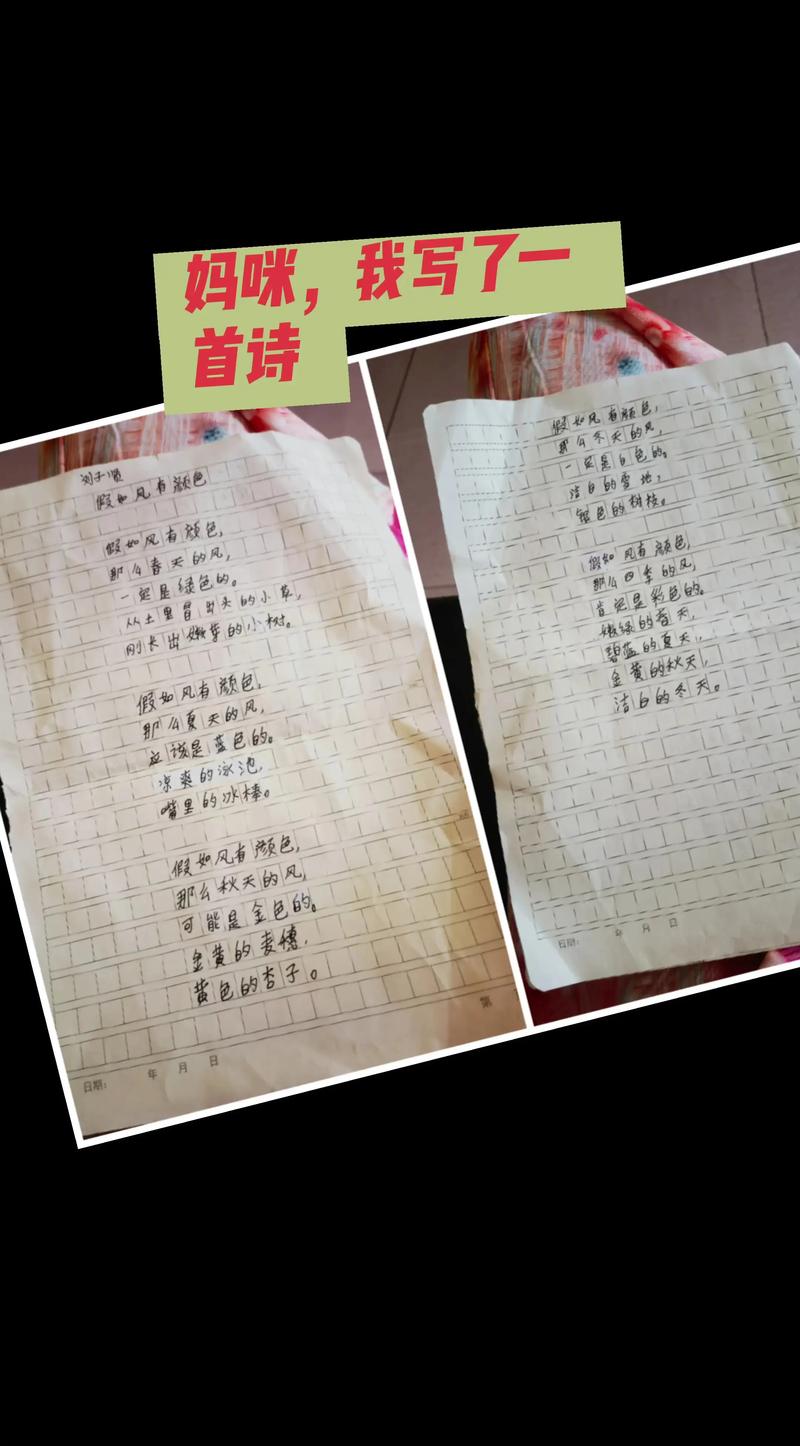 妈咪，我写了一
首诗
刘子贤
假如风有颜色
假如风有颜色，
那么春天的风，
一定是绿色的。
从土里冒出头的小草，
刚长出嫩芽的小树。
假如风有颜色，
那么夏天的风，
应该是蓝色的。
凉爽的泳池，
嘴里的冰棒。
假如风有颜色，
那么秋天的风，
可能是金色的。
金黄的麦穗，
黄色的杏子。
第
日期： 年 月 日
假如风有颜色，
那么冬天的风，
一定是白色的。
洁白的雪地，
银色的树枝。
假如风有颜色，
那么四季的风，
肯定是彩色的。
嫩绿的春天，
碧蓝的夏天，
金黄的秋天，
洁白的冬天。
日期： 年 月 日